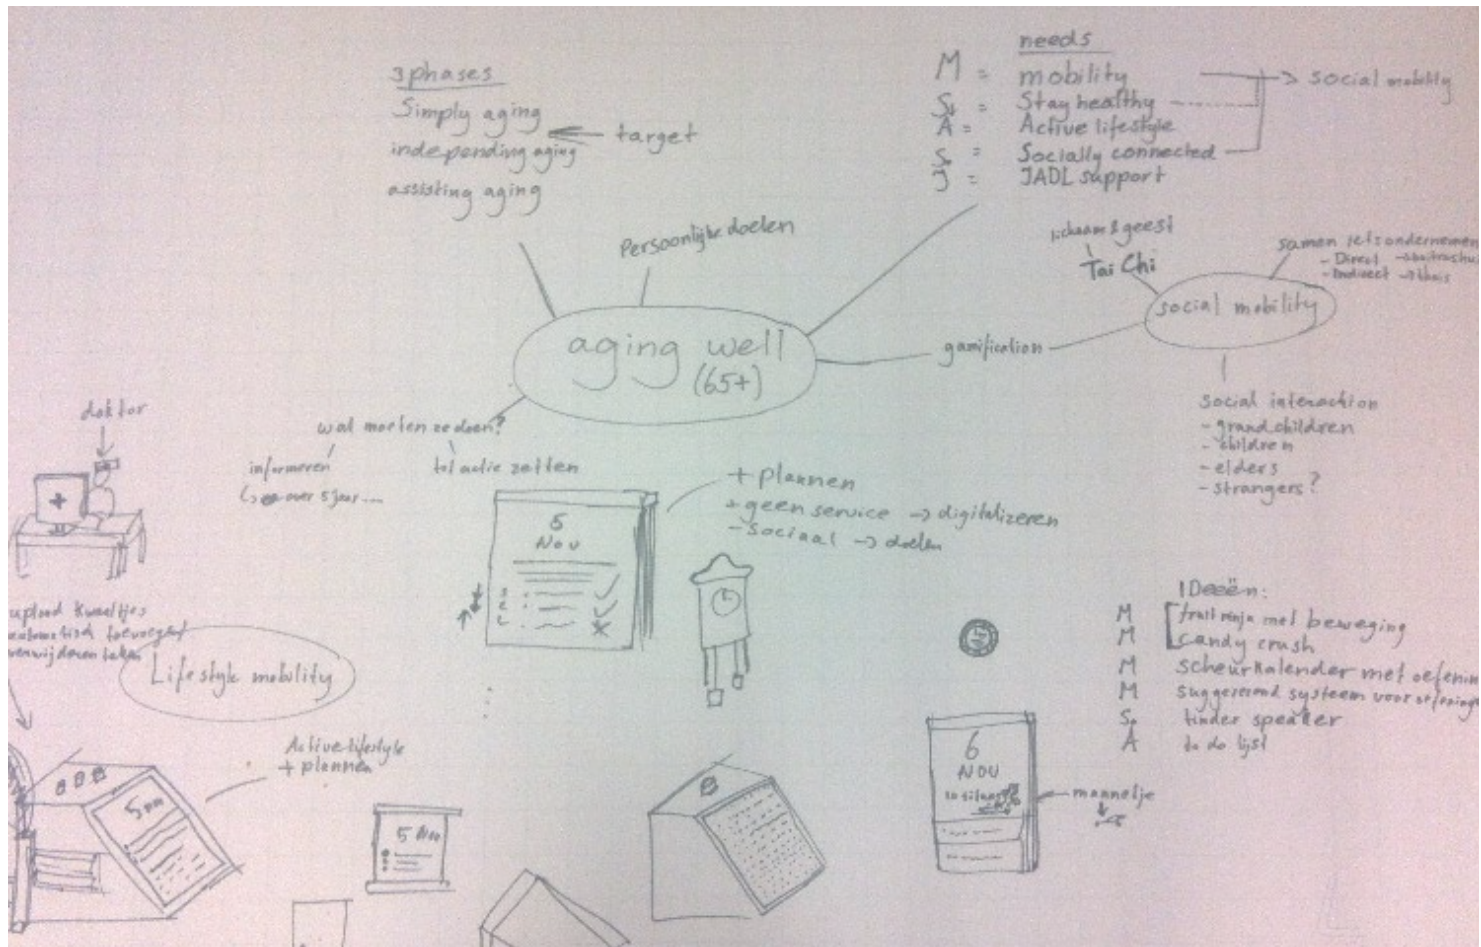 3 phases
Simply aging
independing aging
assisting aging
target
needs
M = mobility
S = Stay healthy
A = Active lifestyle
S = Socially connected
J = JADL support
social mobility
Persoonlijke doelen
aging well
(65+)
gamification
lichaam & geest
Tai Chi
samen iets ondernemen
- Direct
- Indirect → thuis
social mobility
social interaction
- grandchildren
- children
- elders
- strangers?
wat moeten ze doen?
informeren
over 5 jaar....
tot actie zetten
doktor
+
+ plannen
+ geen service → digitalizeren
- sociaal → doelen
5
Nov
upload kwaaltjes
automatisch toevoegen
verwijderen taken
Lifestyle mobility
Active lifestyle
+ plannen
5 nov
5 Nov
6
NOV
mannetje
IDeeën:
M fruit ninja met beweging
M candy crush
M scheurkalender met oefenin
M suggererend systeem voor oefeninge
S tinder speaker
A to do lijst